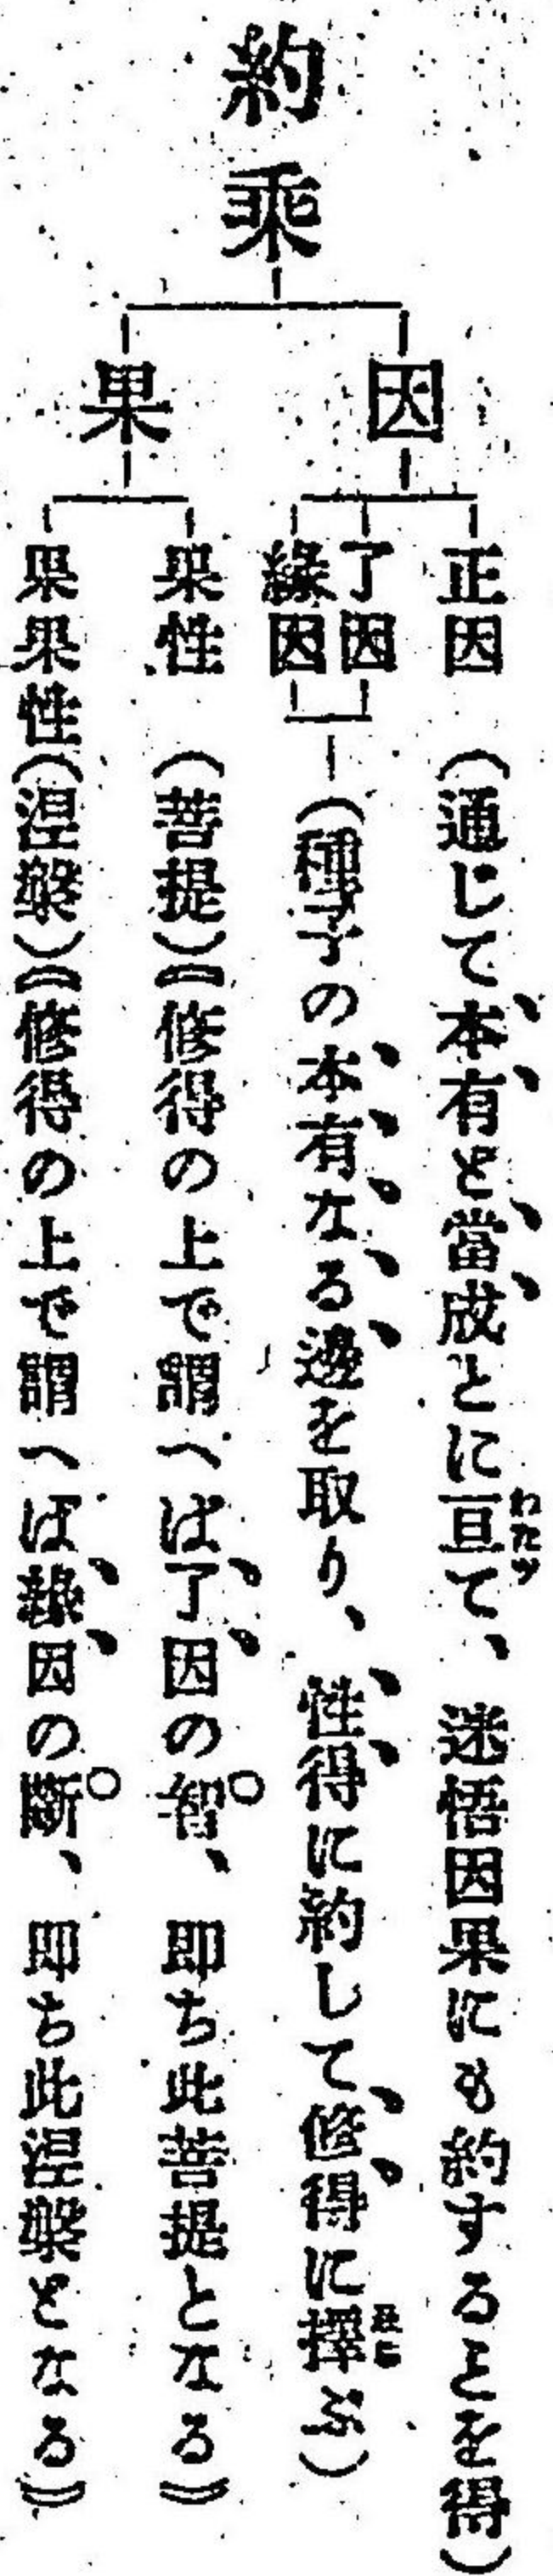 約乘
因
正因 (通じて本有と當成とに亘て、迷悟因果にも約することを得)
わたツ
了因
緣因
(種子の本有なる邊を取り、性得に約して修得に擇ぶ)
果
果性 (菩提)《修得の上で謂へば了因の智、即ち此菩提となる》
果果性(涅槃)《修得の上で謂へば緣因の斷、即ち此涅槃となる》